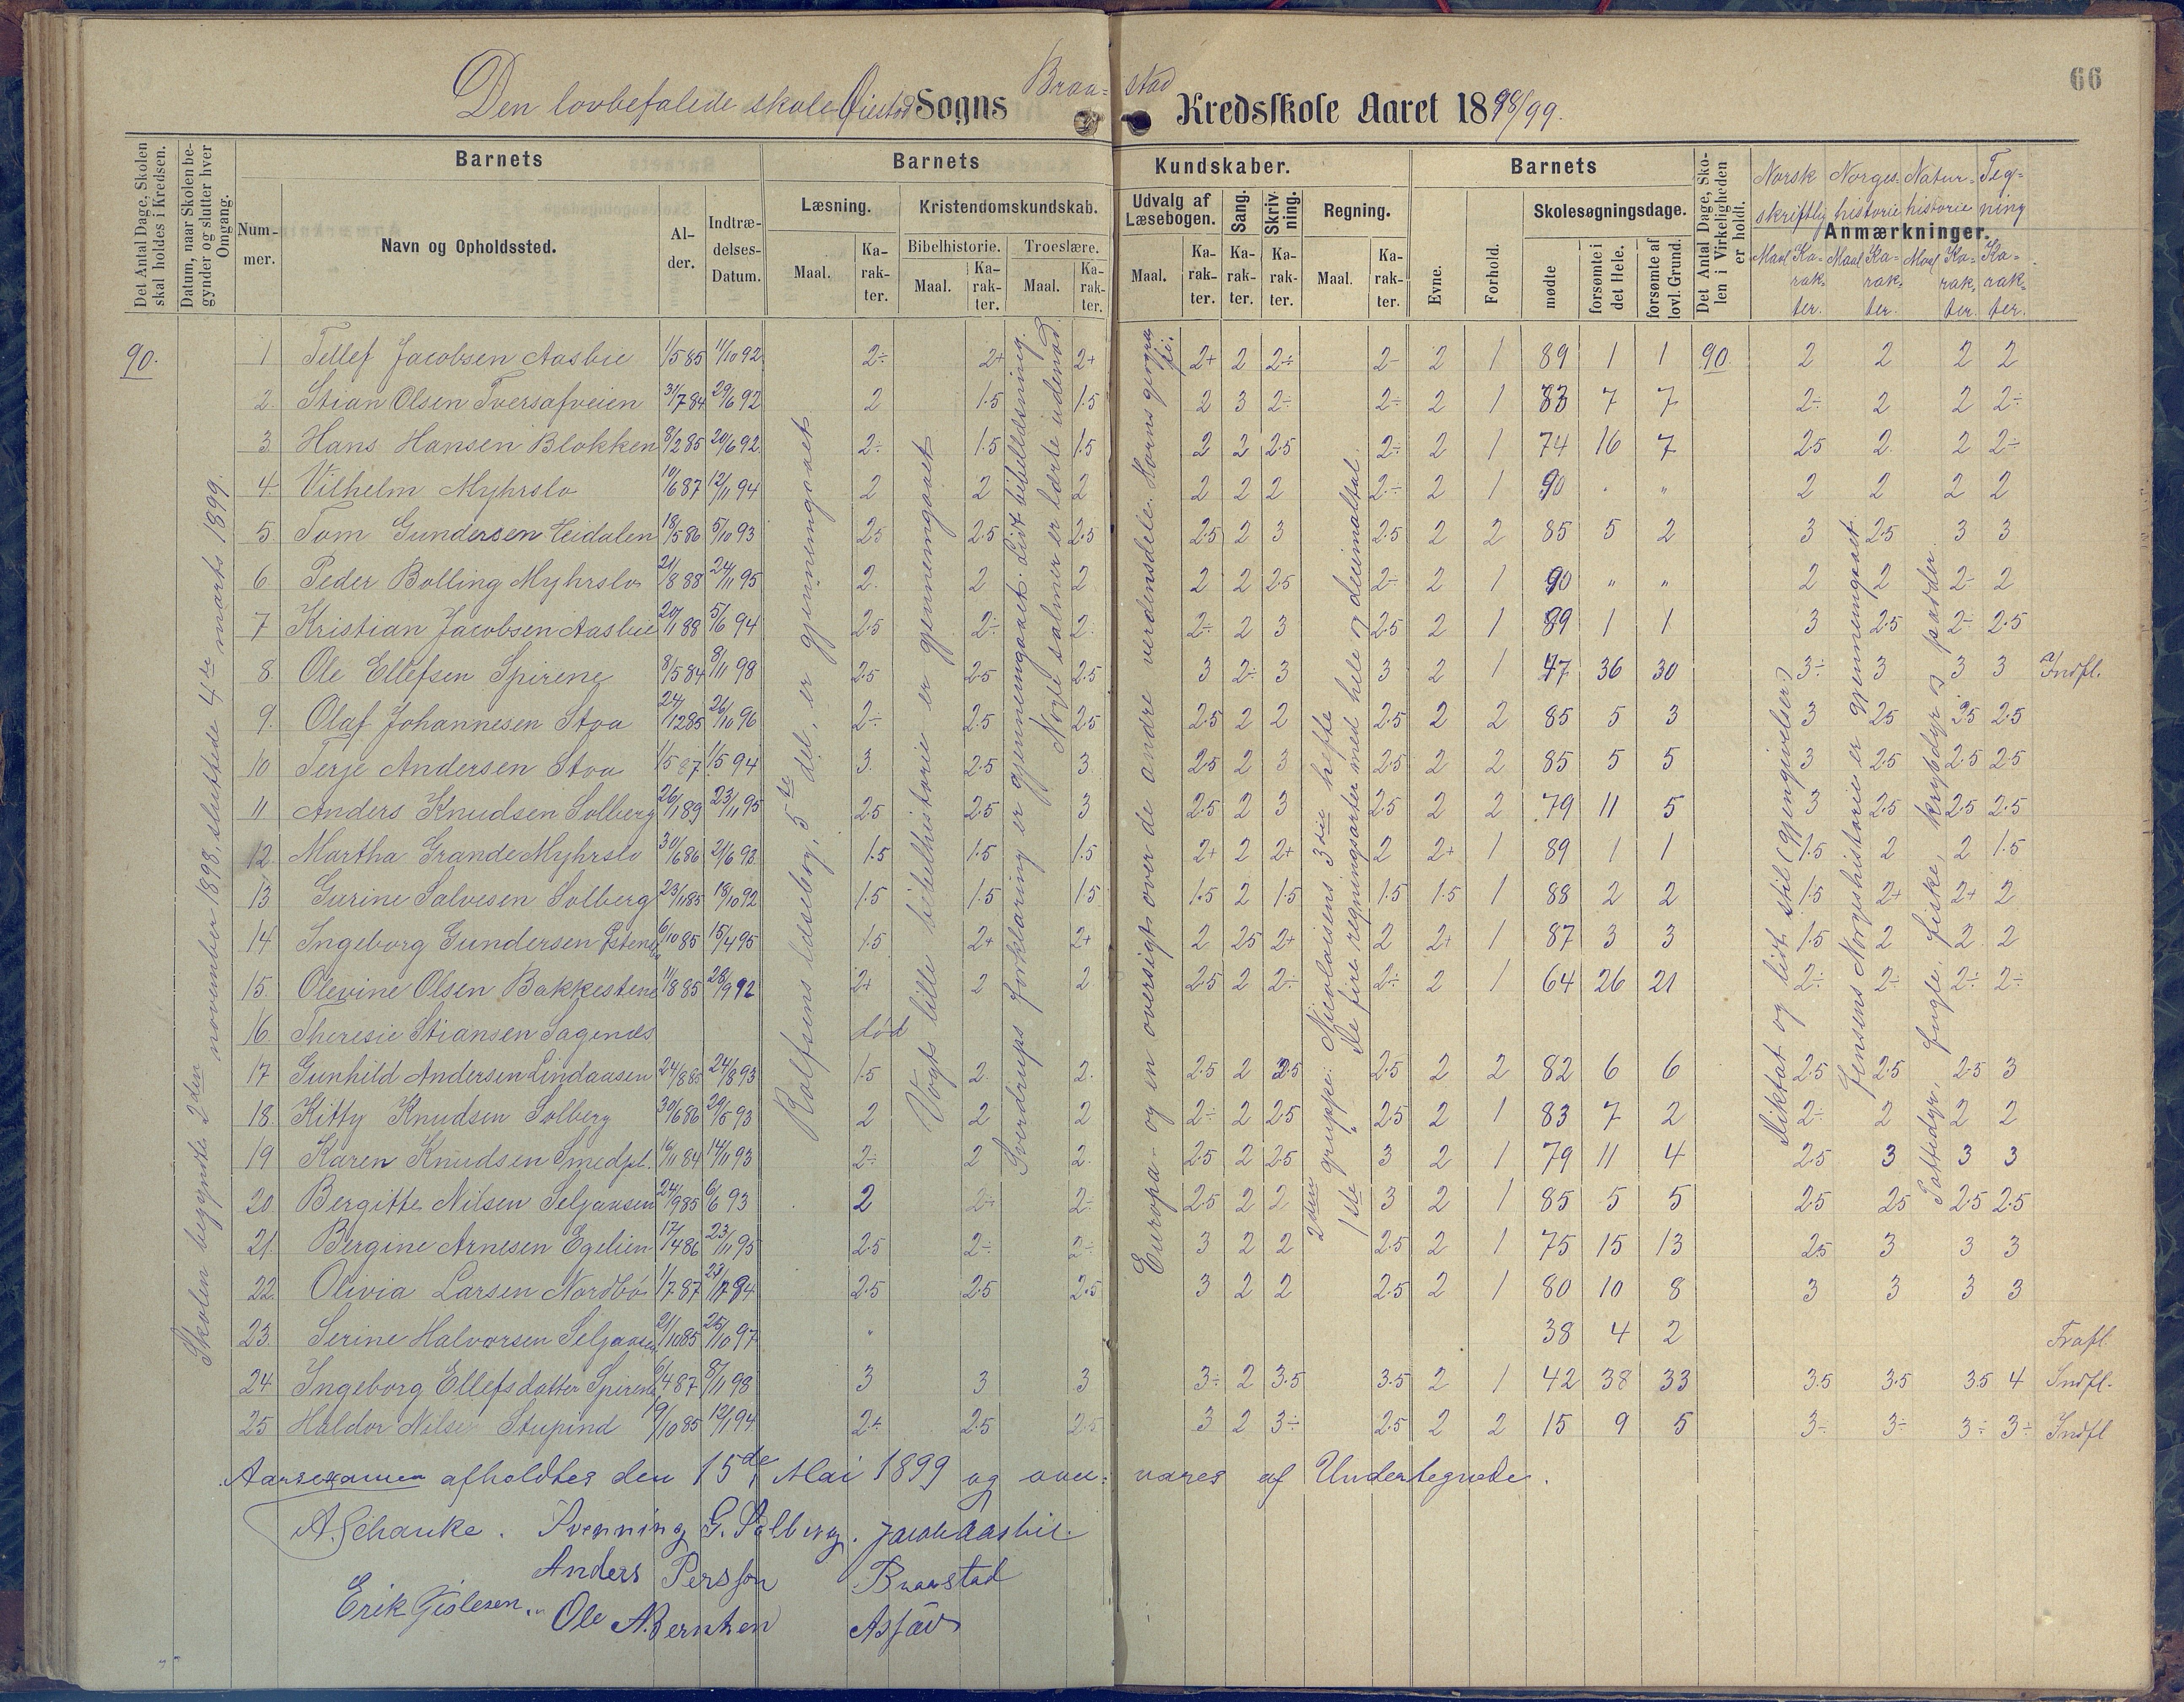 66
Den lovbefalede skole Øiestad Sogns Braa-stad Kredsskole Aaret 1898/99.
Det Antal Dage, Skolen skal holdes i Kredsen.
Datum, naar Skolen begynder og slutter hver Omgang.
Barnets
Barnets
Kundskaber.
Barnets
Det Antal Dage, Skolen i Virkeligheden er holdt.
Norsk skriftlig Norges-historie Natur-historie Teg-ning
Anmærkninger.
Num-mer.
Navn og Opholdssted.
Al-der.
Indtræ-delses-Datum.
Læsning.
Kristendomskundskab.
Udvalg af Læsebogen.
Sang.
Skriv ning.
Regning.
Evne.
Forhold.
Skolesøgningsdage.
Bibelhistorie.
Troeslære.
Maal. Ka-rak-ter. Maal. Ka-rak-ter. Maal. Ka-rak-ter. Maal. Ka-rak-ter. Ka-rak-ter. Ka-rak-ter. Maal. Ka-rak-ter.
mødte
forsømte i det Hele.
forsømte af lovl. Grund.
Maal Ka-rak-ter. Maal Ka-rak-ter. Maal Ka-rak-ter. Ka-rak-ter.
90.
Skolen begyndte 2den november 1898, sluttede 4de marts 1899.
Rolfsens læsebog, 5te del, er gjennemgaaet
Vogts lille bibelhistorie er gjennemgaaet
Sverdrups forklaring er gjennemgaaet. Lidt bibellæsning.
Nogle salmer er lærte udenad.
Europa- og en oversigt over de andre verdensdele. Horns geografi.
2den gruppe: Nicolaisens 3die hefte
1ste " De fire regningsarter med hele og decimaltal.
Diktat og lidt stil (gjengivelser)
Jensens Norgeshistorie er gjennemgaaet
Pattedyr, fugle, fiske, krybdyr og padder
1 Tellef Jacobsen Aasbie 1/5 85 11/10 92 2÷ 2+ 2+ 2+ 2 2÷ 2- 2 1 89 1 1 90. 2 2 2 2
2. Stian Olsen Tversafveien 31/7 84 29/6 92 2 1.5 1.5 2 3 2÷ 2÷ 2 1 83 7 7 2÷ 2 2 2÷
3 Hans Hansen Blokken 8/2 85 20/6 92 2÷ 1.5 1.5 2 2 2.5 2÷ 2 1 74 16 7 2.5 2. 2 2÷
4. Vilhelm Myhrslo 10/6 87 12/11 94 2 2 2 2 2 2 2÷ 2 1 90 . " 2 2 2 2
5. Tom Gundersen Heidalen 18/5 86 5/10 93 2.5 2.5 2.5 2.5 2 3 2.5 2 2 85 5 2 3 2.5 3 3
6 Peder Bolling Myhrslo 21/8 88 24/11 95 2. 2 2 2 2 2.5 2÷ 2 1 90 " " 2 2 2- 2
7 Kristian Jacobsen Aasbie 20/11 88 5/6 94 2.5 2÷ 2. 2÷ 2 3 2.5 2 1 89 1 1 3 2.5 2÷ 2.5
8. Ole Ellefsen Spirene 8/5 84 8/11 98 2.5 2.5 2.5 3 2÷ 3 3 2 1 47 36 30 3÷ 3 3 3 Indfl.
9. Olaf Johannesen Stoa 24/12 85 26/10 96 2÷ 2.5 2.5 2.5 2 2 2.5 2 2 85 5 3 3 2.5 2.5 2.5
10 Terje Andersen Stoa 1/5 87 1/5 94 3. 2.5 3. 2.5 2 3 2.5 2 2 85 5 5 3 2.5 2.5 2.5
11 Anders Knudsen Solberg 26/1 89 23/11 95 2.5 2.5 3 2.5 2 3 2.5 2 2 79 11 5 3 2.5 2.5 2.5
12. Martha Grande Myhrslo 30/6 86 2/6 93 1.5 1.5 1.5 2+ 2 2+ 2 2+ 1 89 1 1 1.5 2 2 1.5
13 Gurine Salvesen Solberg 23/11 85 18/10 92 1.5 1.5 1.5 1.5 2 1.5 1.5 1.5 1 88 2 2 1.5 2+ 2+ 2
14. Ingeborg Gundersen 6/10 85 15/4 95 1.5 2+ 2+ 2 2.5 2+ 2 2+ 1 87 3 3 1.5 2 2. 2
15. Olevine Olsen Bakkestene 11/8 85 28/9 92 2+ 2 2 2.5 2 2÷ 2÷ 2 1 64 26 21 2÷ 2÷ 2÷ 2÷
16. Theresie Stiansen Sagenes død
17 Gunhild Andersen Lindaasen 24/8 85 24/8 93 1.5 2. 2. 2.5 2 2.5 2.5 2 2 82 6 6 2.5 2.5 2.5 3
18. Kitty Knudsen Solberg 30/6 86 29/5 93 2 2 2 2÷ 2 2.5 2.5 2 1 83 7 2 2÷ 2 2 2
19 Karen Knudsen Smedpl. 16/11 84 14/11 93 2÷ 2 2. 2.5 2 2.5 3 2 1 79 11 4 2.5 3 3 3
20 Bergitte Nilsen Seljaasen 24/9 85 6/6 93 2 2÷ 2÷ 2.5 2 2 3 2 1 85 5 5 2.5 2.5 2.5 2.5
21. Bergine Arnesen Egelien 17/4 86 23/11 95 2.5 2÷ 2÷ 3 2 2 2.5 2 1 75 15 13 2.5 3 3 3
22. Olivia Larsen Nordbø 1/7 87 2.5 2.5 2.5 3 2 2 2.5 2 1 80 10 8 3 3 3 3
23. Serine Halvorsen Seljaasen 2/10 85 25/10 97 " 38 4 2 Trafl.
24 Ingeborg Ellefsdatter Spirene 6/4 87 8/11 98 3 3 3 3÷ 2 3.5 3.5 2 1 42 38 33 3.5 3.5 3.5 4 Indfl.
25 Haldor Nilsen Stupind 19/10 85 12/1 94 2+ 2.5 2.5 3 2 3÷ 2.5 2 2 15 9 5 3÷ 3÷ 3÷ 3÷ Indfl
Aarsexamen afholdtes den 15de Mai 1899 og over-vares af Undertegnede.
A. Schanke. Svenning G. Solberg. Jacob Aasbie.
Anders Persson Braastad
Erik Gislesen. Ole A. Berntzen